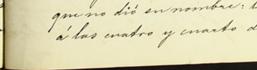 que no dió su nombre:
á las cuatro y cuarto d